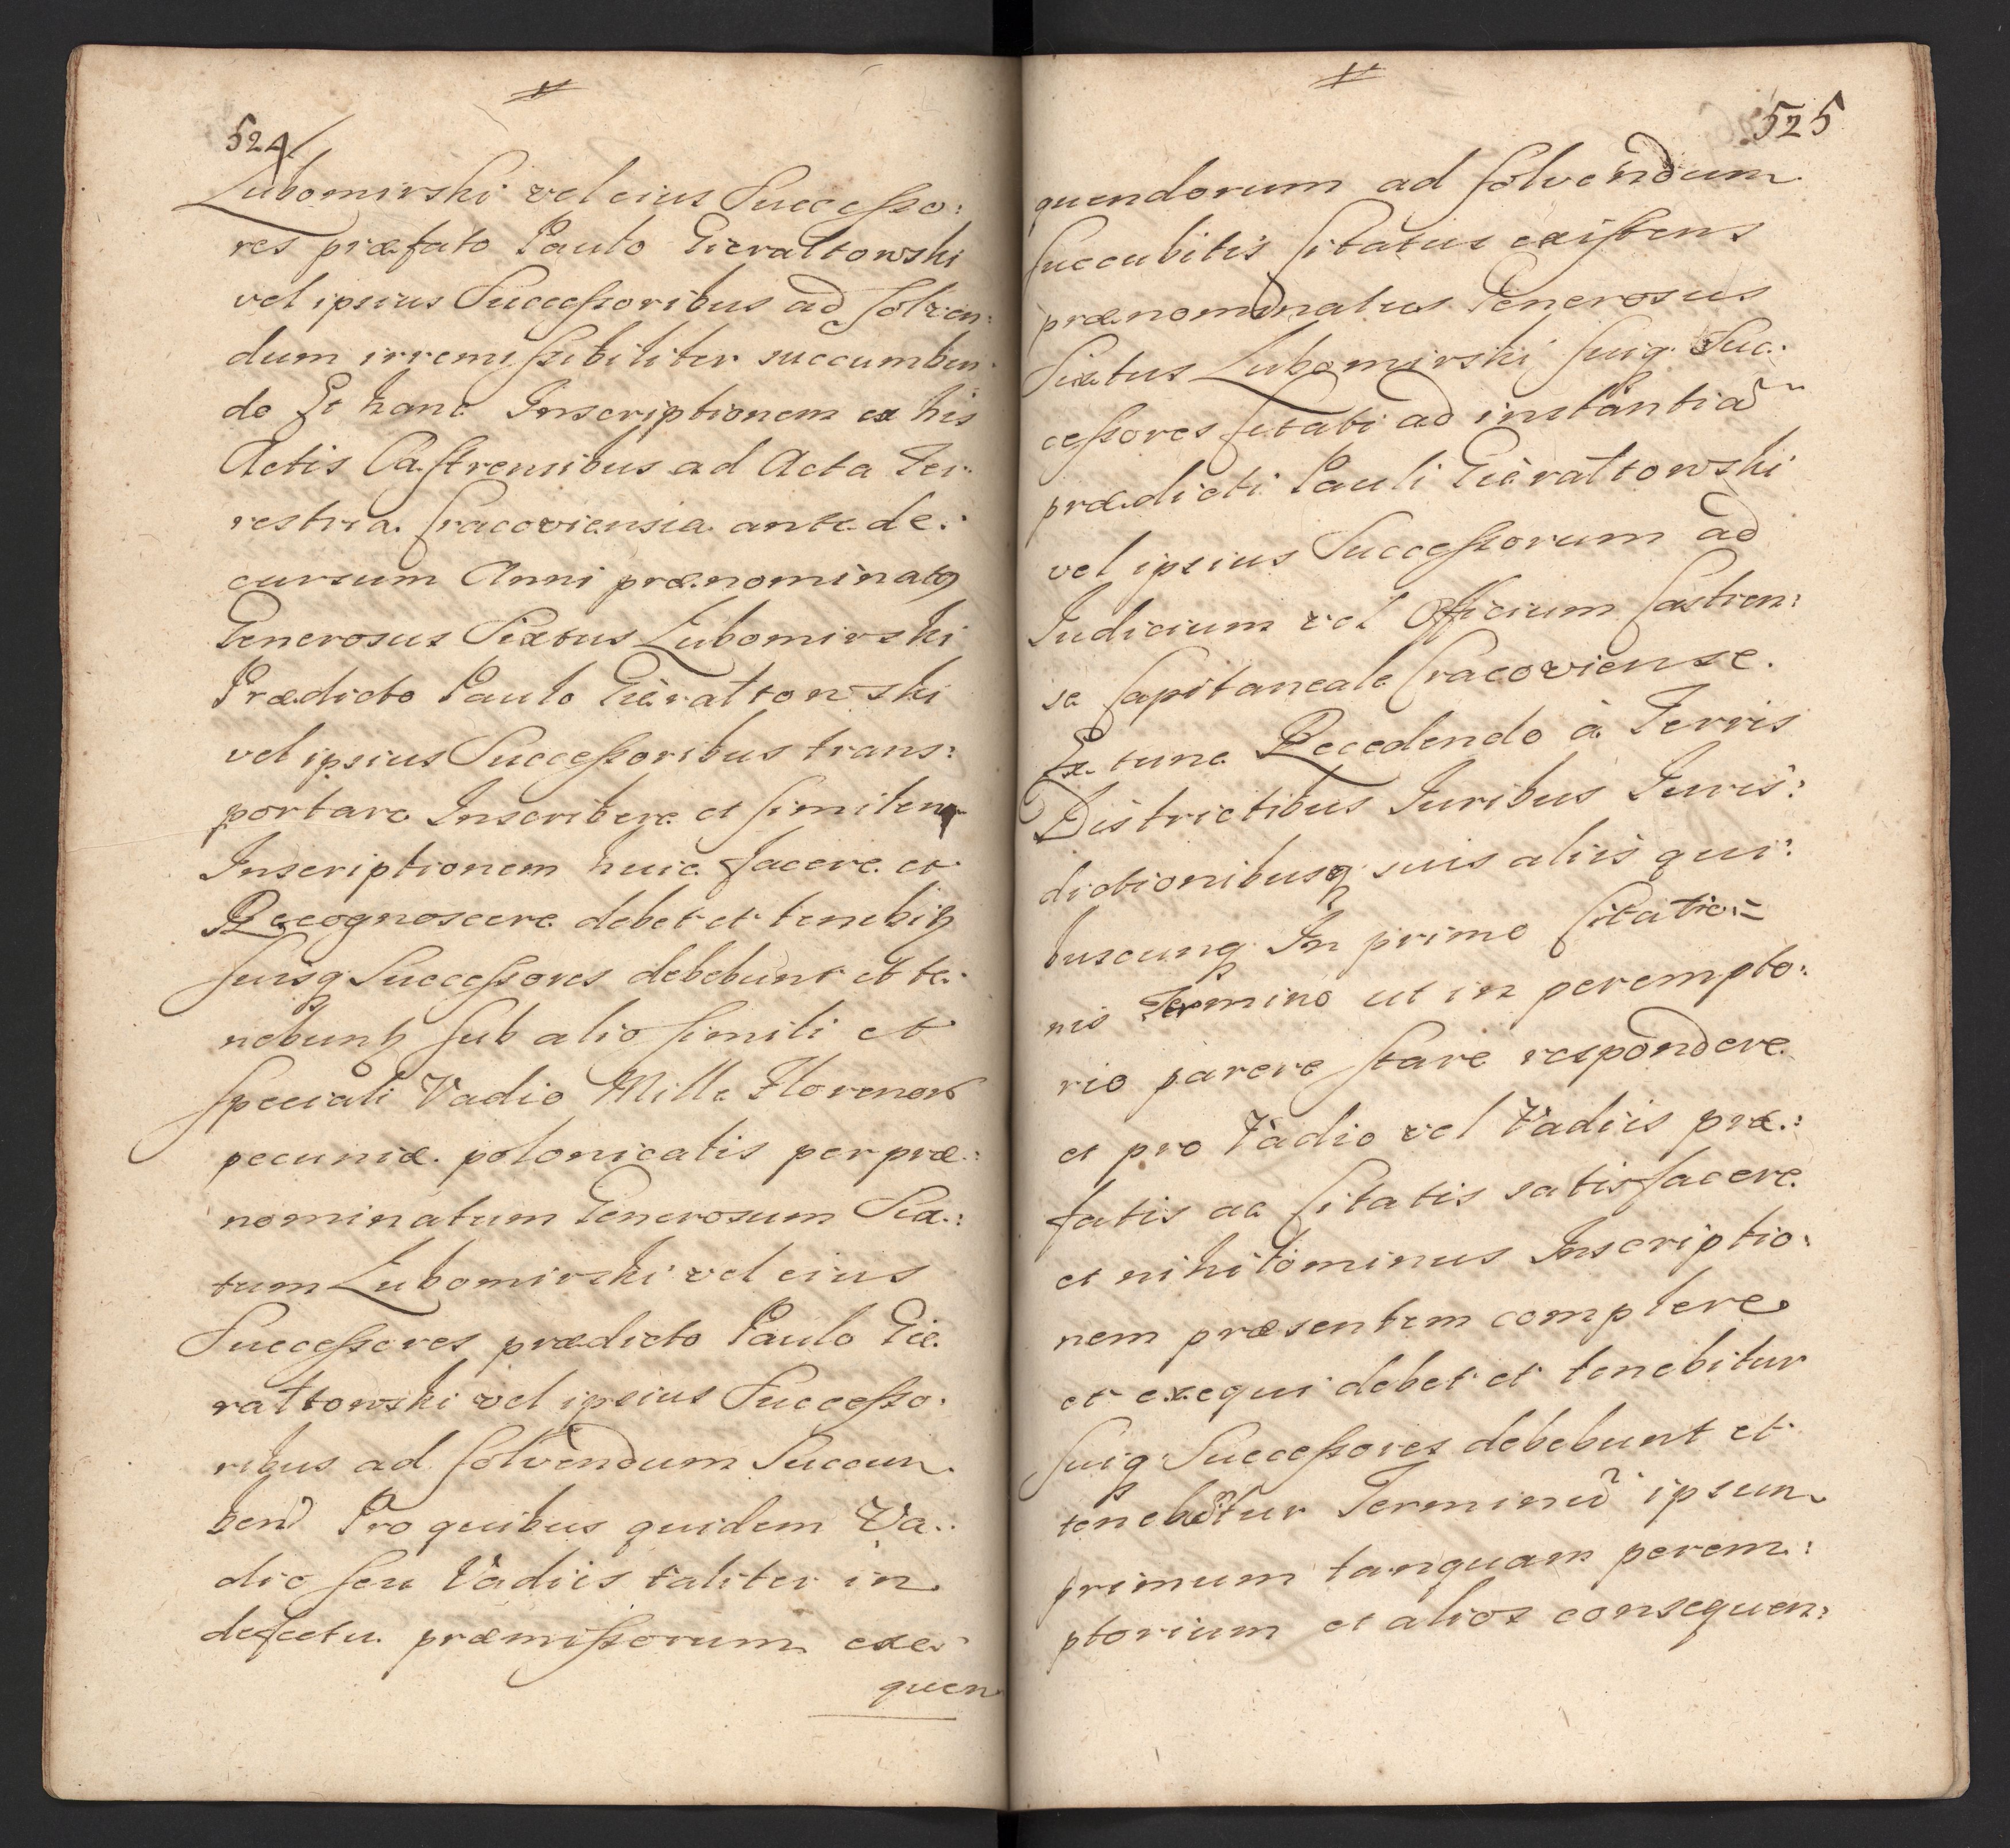 524
Lubomirski vel eius Successo:
res præfato Paulo Gierałtowski
vel ipsius Successoribus ad solven:
dum irremissibiliter succumben:
do Et hanc Inscriptionem ex his
Actis Castrensibus ad Acta Ter:
restria Cracoviensia ante de:
cursum Anni prænominatq
Generosus Sixtus Lubomirski
Prædicto Paulo Gierałtowski
vel ipsius Successoribus trans:
portare Inscribere et similem
Inscriptionem huic facere et
Recognoscere debet et tenebiꝫ
suisq Successores debebunt et te:
nebunꝫ sub alio simili et
speciali Vadio Mille Florenor
pecuniæ polonicalis per præ:
nominatum Generosum Six:
tum Lubomirski vel eius
Successores prædicto Paulo Gie
rałtowski vel ipsius Successo:
ribus ad solvendum Succun
bend Pro quibus quidem Va:
dio seu Vadiis taliter in
defectu præmissorum exe:
quen
525
quendorum ad solvendum
succubitis Citatus existens
prænominatus Generosus
Sixtus Lubomirski suiq Suc:
cessores Citati ad instantia
prædicti Pauli Gierałtowski
vel ipsius Successorum ad
Iudicium vel Officium Castren:
se Capitaneale Cracoviense.
Ex tunc Recedendo à Terris
Districtibus Iuribus Iuris:
dictionibusq suis aliis qui:
buscunq In primo Citatio=
nis Termino ut in perempto:
rio parere stare respondere
et pro Vadio vel Vadiis præ:
fatis ac Citatis satisfacere
et nihilominus Inscriptio:
nem præsentem complere
et exequi debet et tenebitur
suiq Successores debebunt et
tenebũtur Terminũ ipsum
primum tanquam perem:
ptorium et alios consequen: